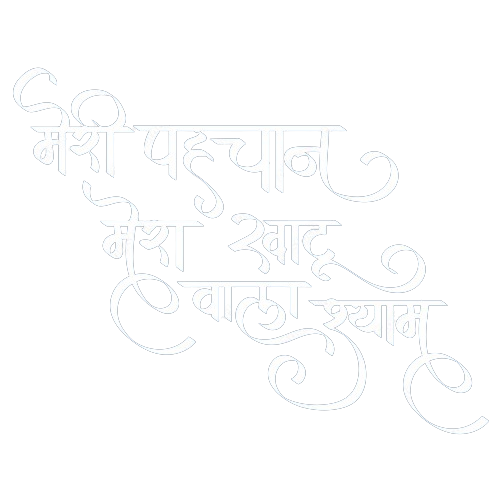 मेरी पहचान
मेरा खाटू
वाला श्याम